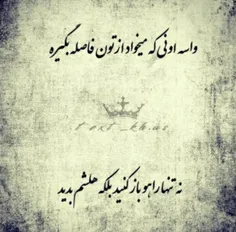 واسه اونی که میخواد ازتون فاصله بگیره
نه تنها راهو باز کنید بلکه هلشم بدید